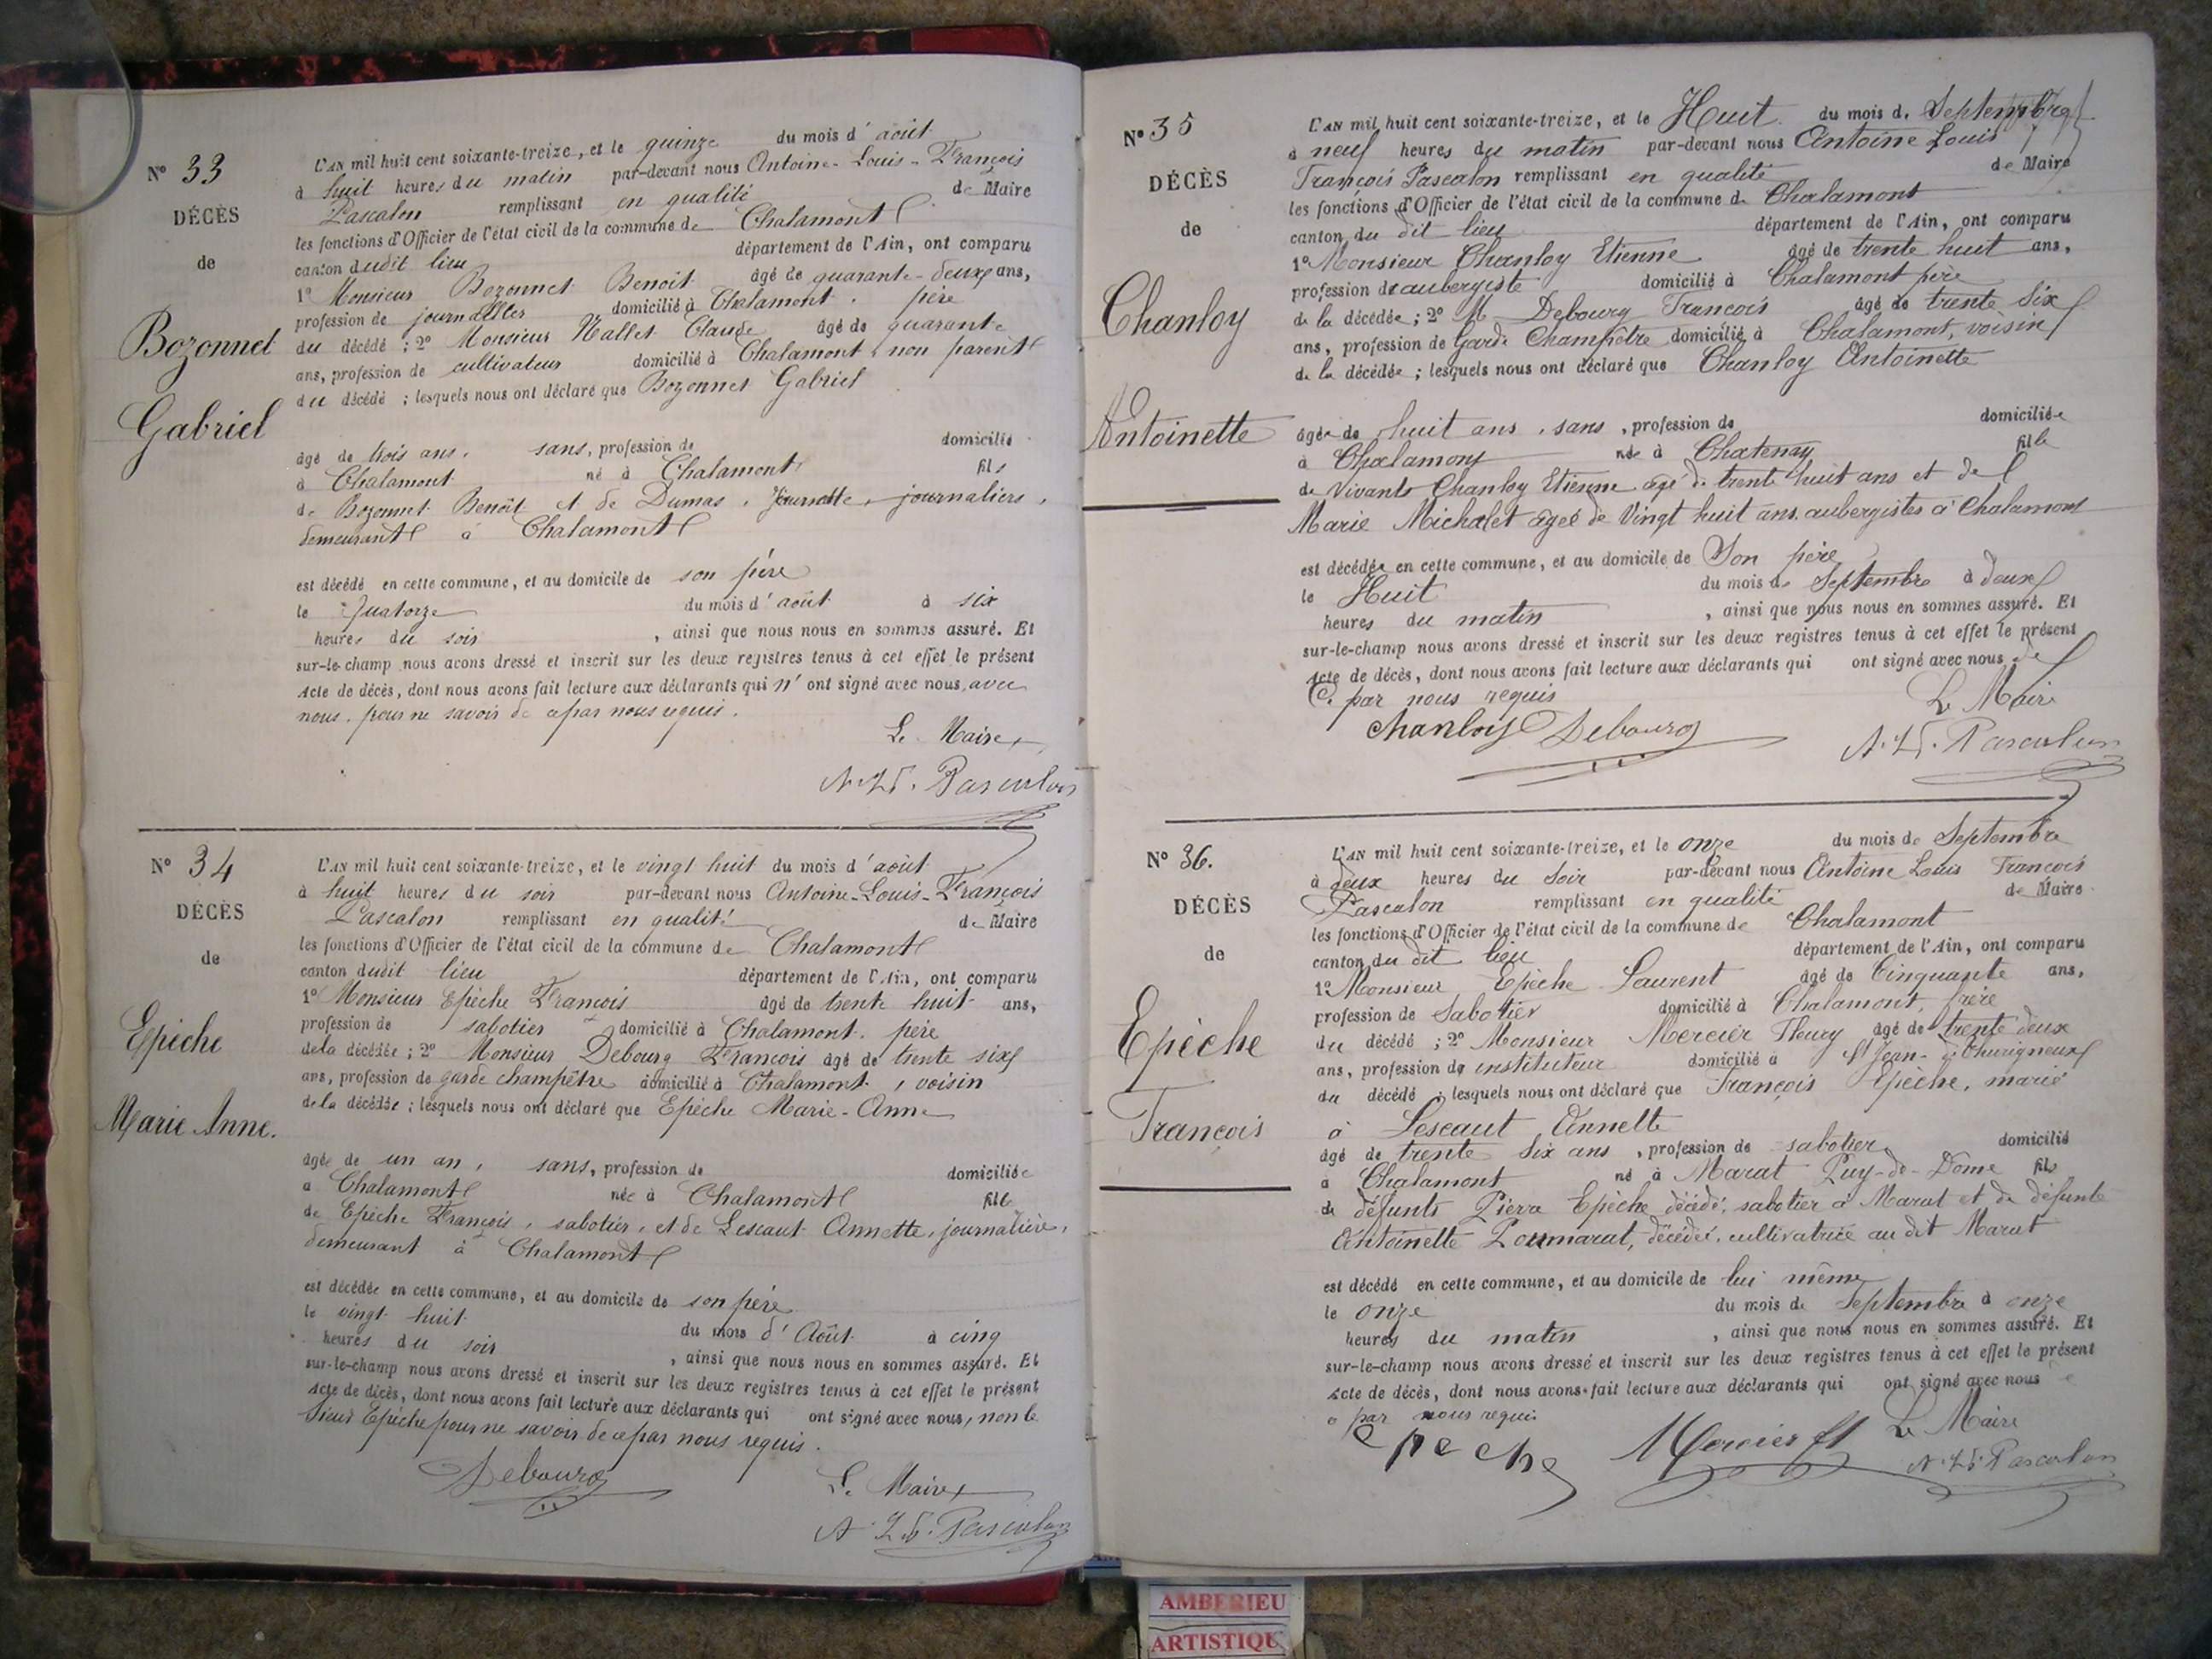 N° 33
DÉCÈS
de
Bozonnet
Gabriel
L'AN mil huit cent soixante-treize, et le quinze du mois d'août
à huit heures du matin par-devant nous Antoine-Louis-François
Pascalon remplissant en qualité de Maire
les fonctions d'Officier de l'état civil de la commune de Chalamont
canton dudit lieu département de l'Ain, ont comparu
1° Monsieur Bozonnet Benoit âgé de quarante-deux ans,
profession de journallier domicilié à Chalamont, père
du décédé ; 2° Monsieur Hallet Claude âgé de quarante
ans, profession de cultivateur domicilié à Chalamont, non parent
du décédé ; lesquels nous ont déclaré que Bozonnet Gabriel
âgé de trois ans, sans, profession de domicilié
à Chalamont né à Chalamont, fils
de Bozonnet Benoît et de Dumas, journaliers,
demeurant à Chalamont
est décédé en cette commune, et au domicile de son père
le Quatorze du mois d'août à six
heures du soir, ainsi que nous nous en sommes assuré. Et
sur-le-champ nous avons dressé et inscrit sur les deux registres tenus à cet effet le présent
Acte de décès, dont nous avons fait lecture aux déclarants qui n'ont signé avec nous, avec
nous, pour ne savoir de ce par nous requis.
Le Maire
A. L. F. Pascalon
N° 34
DÉCÈS
de
Epèche
Marie Anne.
L'AN mil huit cent soixante-treize, et le vingt huit du mois d'août
à huit heures du soir par-devant nous Antoine-Louis-François
Pascalon remplissant en qualité de Maire
les fonctions d'Officier de l'état civil de la commune de Chalamont
canton dudit lieu département de l'Ain, ont comparu
1° Monsieur Epèche François âgé de trente huit ans,
profession de sabotier domicilié à Chalamont, père
de la décédée ; 2° Monsieur Debourg François âgé de trente six
ans, profession de garde champêtre domicilié à Chalamont, voisin
de la décédée ; lesquels nous ont déclaré que Epèche Marie-Anne
âgée de un an, sans, profession de domiciliée
à Chalamont née à Chalamont fille
de Epèche François, sabotier, et de Lescaut Annette, journalière,
demeurant à Chalamont
est décédée en cette commune, et au domicile de son père
le vingt huit du mois d'Août à cinq
heures du soir, ainsi que nous nous en sommes assuré. Et
sur-le-champ nous avons dressé et inscrit sur les deux registres tenus à cet effet le présent
Acte de décès, dont nous avons fait lecture aux déclarants qui ont signé avec nous, non le
sieur Epèche pour ne savoir de ce par nous requis.
Debourg
Le Maire
A. L. F. Pascalon
N° 35
DÉCÈS
de
Chanloy
Antoinette
L'AN mil huit cent soixante-treize, et le Huit du mois de Septembre
à neuf heures du matin par-devant nous Antoine Louis
François Pascalon remplissant en qualité de Maire
les fonctions d'Officier de l'état civil de la commune de Chalamont
canton du dit lieu département de l'Ain, ont comparu
1° Monsieur Chanloy Etienne âgé de trente huit ans,
profession de aubergiste domicilié à Chalamont père
de la décédée ; 2° M Debourg François âgé de trente Six
ans, profession de Garde Champêtre domicilié à Chalamont, voisin
de la décédée ; lesquels nous ont déclaré que Chanloy Antoinette
âgée de huit ans, sans, profession de domiciliée
à Chalamont née à Chatenay fille
de Vivants Chanloy Etienne agé de trente huit ans et de
Marie Michalet agée de Vingt huit ans aubergistes à Chalamont
est décédée en cette commune, et au domicile de Son père
le Huit du mois de Septembre à deux
heures du matin, ainsi que nous nous en sommes assuré. Et
sur-le-champ nous avons dressé et inscrit sur les deux registres tenus à cet effet le présent
Acte de décès, dont nous avons fait lecture aux déclarants qui ont signé avec nous de
Ce par nous requis
Chanloy Debourg
Le Maire
A. L. F. Pascalon
N° 36.
DÉCÈS
de
Epèche
François
L'AN mil huit cent soixante-treize, et le onze du mois de Septembre
à deux heures du Soir par-devant nous Antoine Louis François
Pascalon remplissant en qualité de Maire
les fonctions d'Officier de l'état civil de la commune de Chalamont
canton du dit lieu département de l'Ain, ont comparu
1° Monsieur Epèche Laurent âgé de Cinquante ans,
profession de Sabotier domicilié à Chalamont, frère
du décédé ; 2° Monsieur Mercier Fleury âgé de trente deux
ans, profession de instituteur domicilié à St Jean-de-Thurigneux
du décédé ; lesquels nous ont déclaré que François Epèche, marié
à Lescaut Annette
âgé de trente Six ans, profession de sabotier domicilié
à Chalamont né à Marat Puy-de-Dome fils
de défunts Pierre Epèche décédé, sabotier à Marat et de défunte
Antoinette Pommarat, décédée, cultivatrice au dit Marat
est décédé en cette commune, et au domicile de lui même
le onze du mois de Septembre à onze
heures du matin, ainsi que nous nous en sommes assuré. Et
sur-le-champ nous avons dressé et inscrit sur les deux registres tenus à cet effet le présent
Acte de décès, dont nous avons fait lecture aux déclarants qui ont signé avec nous
par nous requis
epeche Mercier fl Le Maire
A. L. F. Pascalon
AMBERIEU
ARTISTIQU